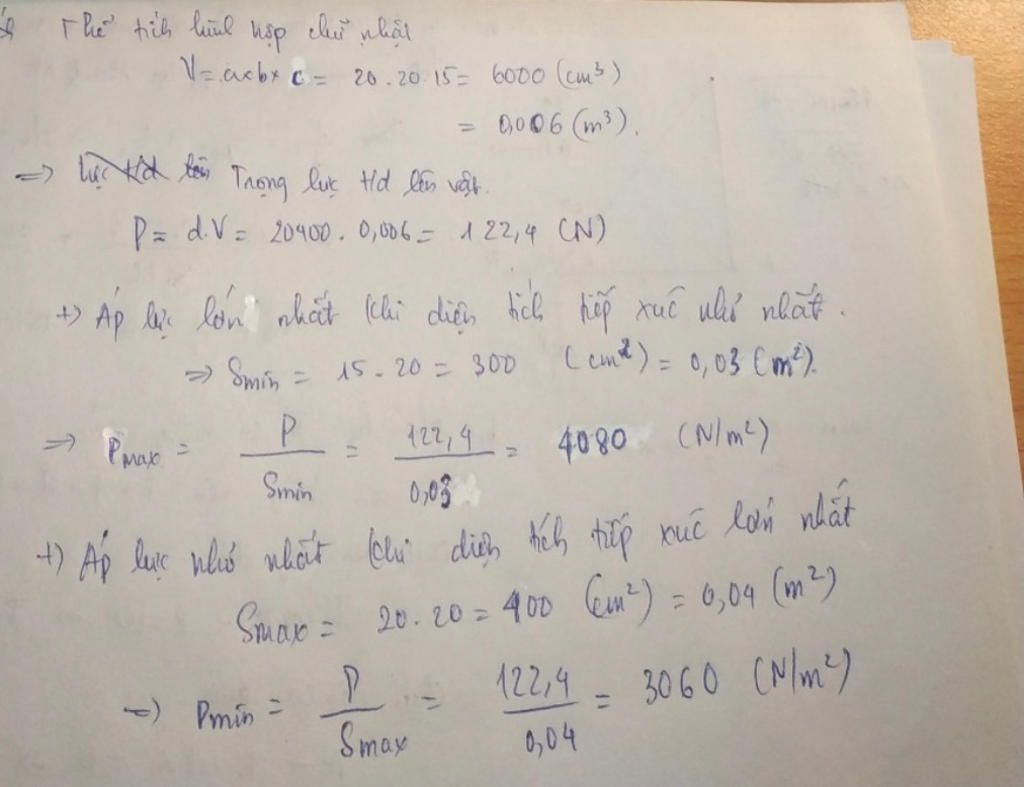 Thể tích hình hộp chữ nhật
V = a×b×c = 20.20.15 = 6000 (cm³)
= 0,006 (m³).
=> Trọng lực t/d lên vật.
P = d.V = 20400.0,006 = 122,4 (N)
+) Áp lực lớn nhất khi diện tích tiếp xúc nhỏ nhất.
=> Smin = 15.20 = 300 (cm²) = 0,03 (m²).
=> Pmax = P/Smin = 122,4/0,03 = 4080 (N/m²)
+) Áp lực nhỏ nhất khi diện tích tiếp xúc lớn nhất
Smax = 20.20 = 400 (cm²) = 0,04 (m²)
=> Pmin = P/Smax = 122,4/0,04 = 3060 (N/m²)